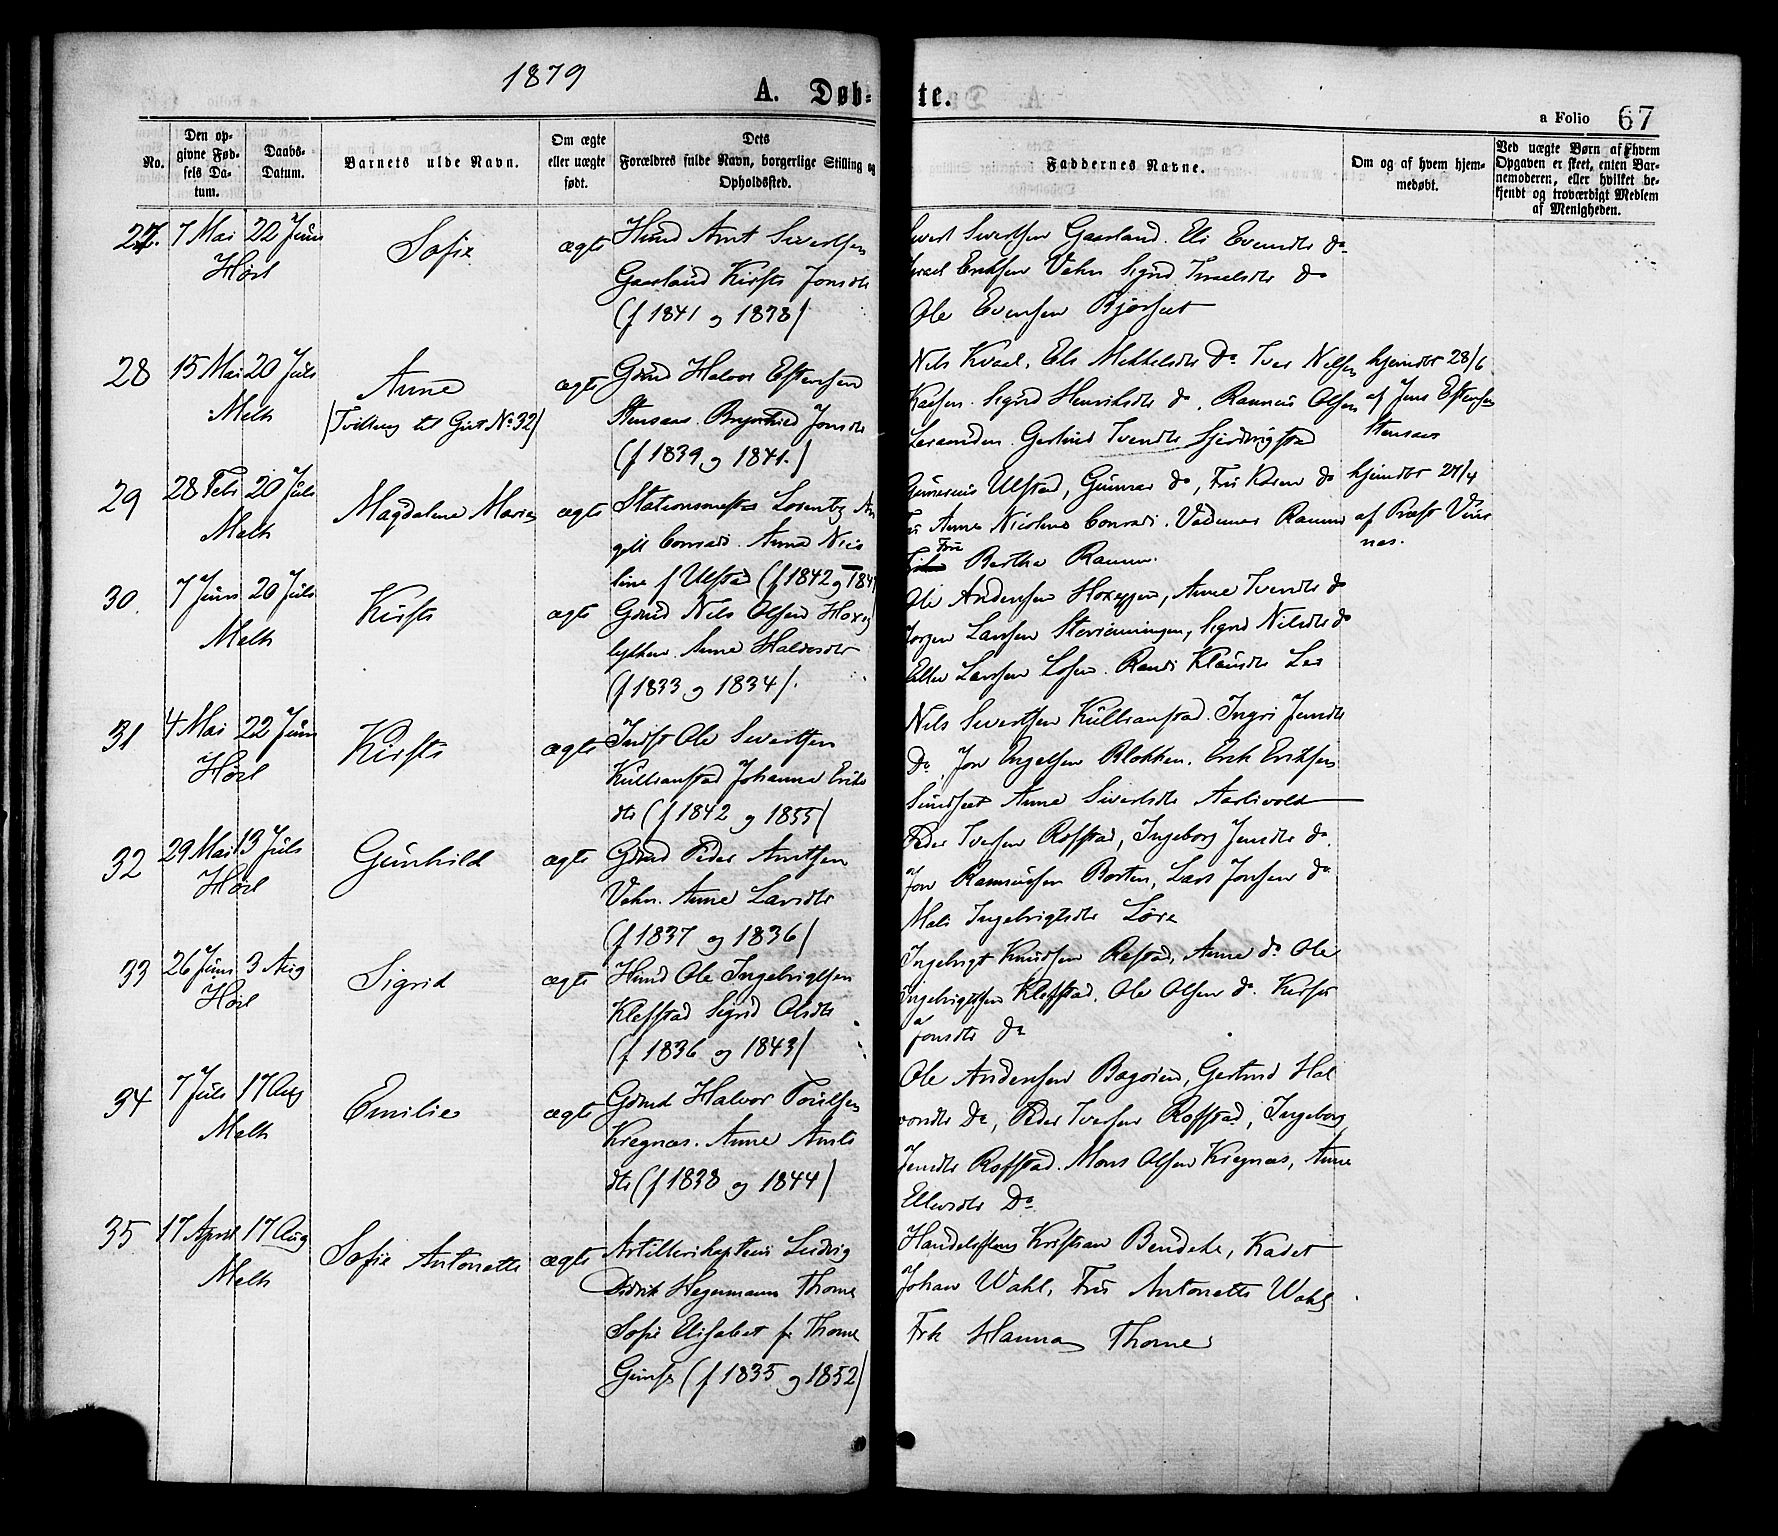 1879
A. Døb=
te.
a Folio 67
No.
Den op-
givne Fød-
sels Da-
tum.
Daabs-
Datum.
Barnets fulde Navn.
Om ægte
eller uægte
født.
Dets
Forældres fulde Navn, borgerlige Stilling og
Opholdssted.
Faddernes Navne.
Om og af hvem hjem-
medøbt.
Ved uægte Børn af hvem
Opgaven er skeet, enten Bar-
nemoderen, eller hvilket be-
kjendt og troværdigt Medlem
af Menigheden.
27. 7 Mai 22 Juni
Høil
Sofie
ægte
Husmd Arnt Sivertsen
Gaasland Kirsti Jonsdtr
(f 1841 og 1838)
Sivert Sivertsen Gaasland. Eli Evensdtr do
Israel Eriksen Vehn Sigrid Israelsdtr do
Ole Evensen Bjørset
28 15 Mai 20 Juli
Melh
Anne
(Tvilling til Girt No 32)
ægte
Gbmd Halvor Estensen
Stensaas. Brynhild Jonsdtr
(f 1839 og 1841.)
Nils Kvaal, Eli Mikkelsdtr Do Iver Nilsen
Sigrid Henriksdtr do, Rasmus Olsen
Gertrud Iversdtr
hjemdbt 28/6
af Jens Estensen
Stensaas
29 28 Feb 20 Juli
Melh
Magdalene Marie
ægte
Stationsmester Lorentz An
gell Conradi. Anna Nico
line f Ulstad (f 1842 og 184
Gunerius Ulstad, Gunnar do, Fru Karen do
Fru Anne Nicoline Conradi.
Frue
Berthe
hjemdbt 27/4
af Præst Vius
nes.
30. 7 Juni 20 Juli
Melh
Kirsti
ægte
Gbmd Nils Olsen
løkken. Anne Haldosdtr
(f 1833 og 1834).
Ole Andersen Anne Iversdtr do
Jørgen Larssen Sigrid Nilsdtr do
Eller Larssen Losen. Randi Klausdtr
31 4 Mai 22 Juni
Høil
Kirsti
ægte
Indst Ole Sivertsen
Kulleanstad Johanna Eriks
dtr (f 1842 og 1855)
Nils Sivertsen Kulleanstad. Ingri Jensdtr
Do, Jon Engelsen Blokken. Erik Eriksen
Sundset Anne Sivertsdtr
32 29 Mai 13 Juli
Høil
Gunhild
ægte
Gbmd Peder Arntsen
Vehn. Anne Larsdtr
(f 1837 og 1836)
Peder Iversen Rofstad, Ingeborg Jensdtr do.
Jon Rasmusen Borten, Lars Jonsen do
Mali Ingebrigtsdtr Løre
33 26 Juni 3 Aug
Høil
Sigrid
ægte
Husmd Ole Ingebrigtsen
Klefstad Sigrid Olsdtr
(f 1836 og 1843)
Ingebrigt Knudsen Rofstad, Anne do Ole
Ingebrigtsen Klefstad, Ole Olsen do. Kirsti
Jonsdtr do
34 7 Juli 17 Aug
Melh
Emilie
ægte
Gbmd Halvor Poulsen
Kregnæs. Anne Arnts
dtr (f 1838 og 1844)
Ole Andersen Bagøien, Gertrud Hal
vorsdtr Do, Peder Iversen Rofstad, Ingeborg
Jensdtr Rofstad. Mons Olsen Kregnæs, Anne
Ellevsdtr Do
35 17 April 17 Aug
Melh
Sofie Antonette
ægte
Artillerikaptein Ludvig
Didrik Hegermann Thorne
Sofie Elisabet f. Thorne
Gimse (f 1835 og 1852)
Handelsflmg Kristian Bendeke, Kadet
Johan Wahl, Fru Antonette Wahl
Frk Hanna Thorne